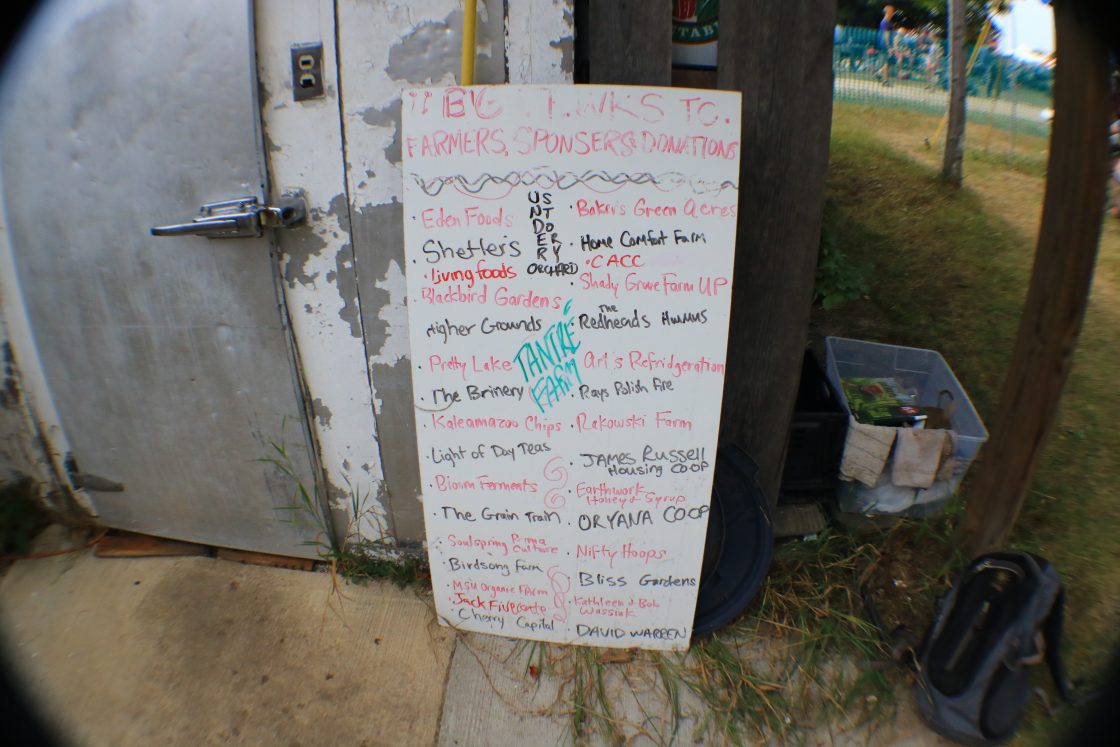 "BIG THNKS TO:
FARMERS, SPONSERS & DONATIONS
· Eden Foods
· Shetler's
· Living foods
Blackbird Gardens
Higher Grounds
· Pretty Lake
· The Brinery
· Kaleamazoo Chips
· Light of Day Teas
Biorm Ferments
The Grain Train
· Soulspring Perma
Culture
· Birdsong Farm
· MSU Organic FArm
· Jack Five
· Cherry Capital
US
NT
Do
ER
RY
ORCHARD
TANTRE
FARM
· Baker's Green Acres
· Home Comfort Farm
· CACC
· Shady Grove Farm UP
· The Redheads Hummus
Ari's Refridgeration
· Rays Polish Fire
· Rakowski Farm
· JAMES RUSSELL
Housing CO OP
· Earthwork
Honey & Syrup
· ORYANA COOP
· Nifty Hoops
Bliss Gardens
· Kathleen & Bob
Wassink
· DAVID WARREN